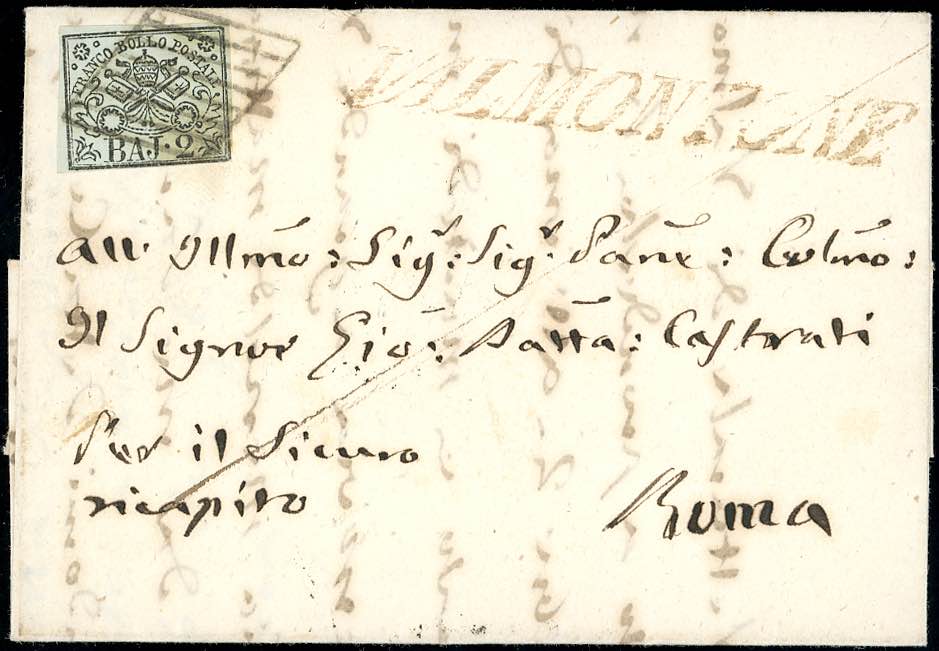 FRANCO BOLLO POSTALE
BAJ. 2
VALMONTONE
All' Illmõ: Sigʳ: Sigʳ. Pañe: Colmõ:
Il Signor Giõ: Batta: Castrati
Per il Sicuro
ricapito
Roma